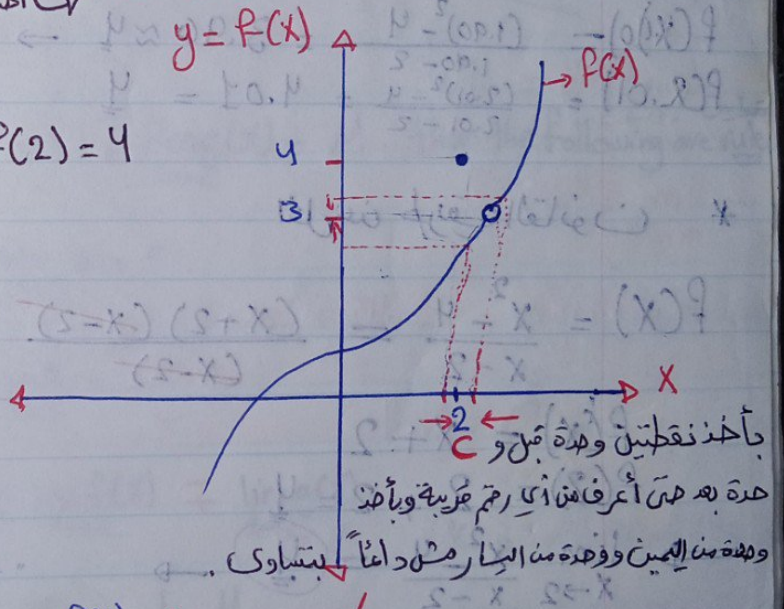 y = f(x)
f(x)
f(2) = 4
4
3
x
2
c
بأخذ نقطتين وحدة قبل و
حدة بعد حتى أعرف من أي رقم قريبة وبأخذ
وحدة من اليمين ووحدة من اليسار مش دائماً بتتساوى .